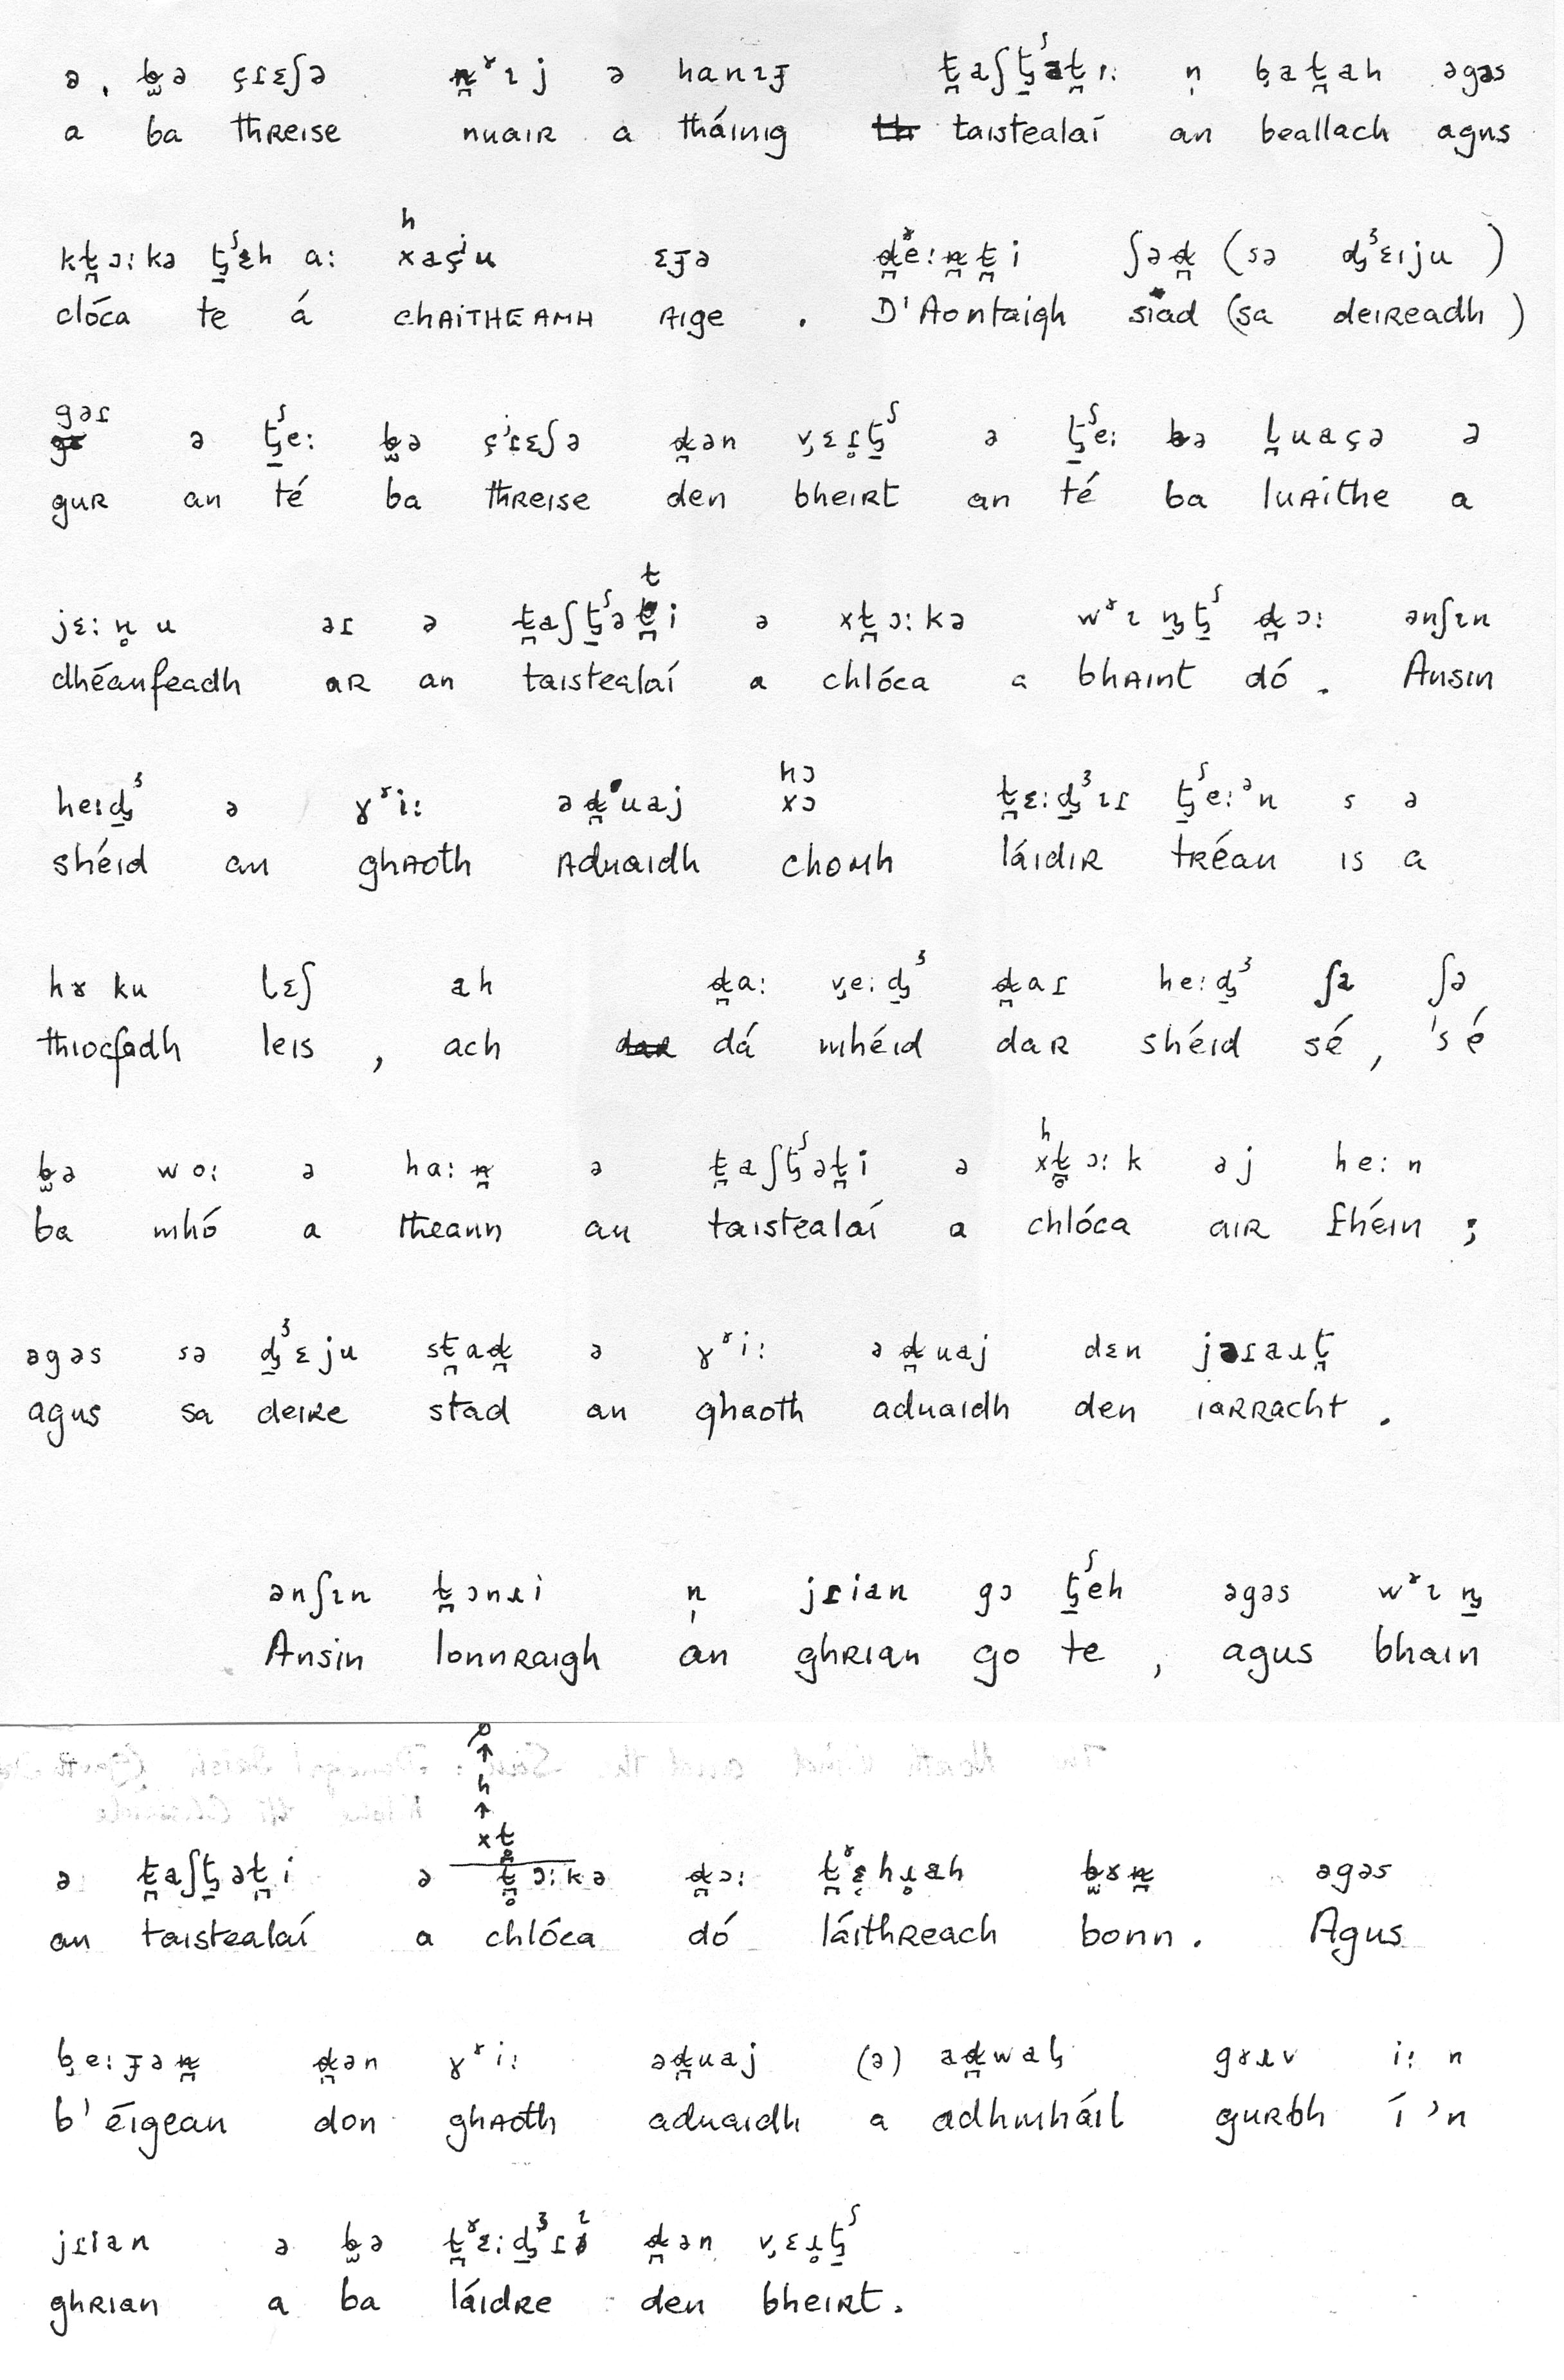 ə , b̫ə çɾɛʃə n̪ˠɪj ə hanɪɟ t̪aʃt̠ʲˢət̪ɪː n̩ bʲat̪ah əgəs
a ba threise nuair a tháinig taistealaí an beallach agus
h
kt̪ɔːkə t̠ʲˢɛh aː xaçʲu ɛɟə d̪ˠeːn̪t̪i ʃəd̪ (sə d̠ʲᶾɛɪju)
clóca te á chaitheamh aige . D'Aontaigh siad (sa deireadh)
gəɾ
ə t̠ʲˢeː b̫ə çʲɾɛʃə d̪ən vʲɛɾ̥t̠ʲˢ ə t̠ʲˢeː bə l̪uaçə ə
gur an té ba threise den bheirt an té ba luaithe a
t
jɛːn̥u əɾ ə t̪aʃt̠ʲˢət̪i ə xt̪ɔːkə wˠɪn̠ʲt̠ʲˢ d̪ɔː ənʃɪn
dhéanfeadh ar an taistealaí a chlóca a bhaint dó . Ansin
hɔ
heɪd̠ʲᶾ ə ɣˠiː əd̪ˠuaj xɔ t̪ɛːd̠ʲᶾɪɾ t̠ʲˢeːᵊn s ə
shéid an ghaoth aduaidh chomh láidir tréan is a
hɤku lɛʃ ah d̪aː vʲeːd̠ʲᶾ d̪aɾ heːd̠ʲᶾ ʃə ʃə
thiocfadh leis , ach dá mhéid dar shéid sé , 'sé
h
b̫ə woː ə haːn̪ ə t̪aʃt̠ʲˢət̪i ə xt̪̥ɔːk əj heːn
ba mhó a theann an taistealaí a chlóca air fhéin ;
əgəs sə d̠ʲᶾɛju st̪ad̪ ə ɣˠiː əd̪uaj dɛn jəɾaɹt̪
agus sa deire stad an ghaoth aduaidh den iarracht .
ənʃɪn t̪ɔnɹi n̩ jɾian gɔ t̠ʲˢeh əgəs wˠɪn̠ʲ
Ansin lonnraigh an ghrian go te , agus bhain
↑
h
↑
xt̪̥
ə t̪aʃt̠ʲət̪i ə t̪̥ɔːkə d̪ɔː t̪ˠɛhɹ̥ah b̫ɤn̪ əgəs
an taistealaí a chlóca dó láithreach bonn . Agus
bʲeːɟən̪ d̪ən ɣˠiː əd̪uaj (ə) ad̪walʲ gɤɹv iː n
b' éigean don ghaoth aduaidh a adhmháil gurbh í 'n
jɾian ə b̫ə t̪ˠɛːd̠ʲᶾɾɪ d̪ən vʲɛɹ̥t̠ʲˢ
ghrian a ba láidre den bheirt .